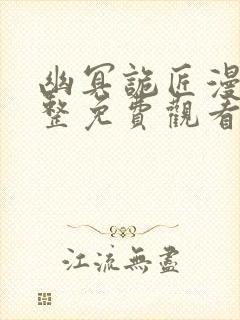 幽冥詭匠漫
整免費觀看
江流無盡